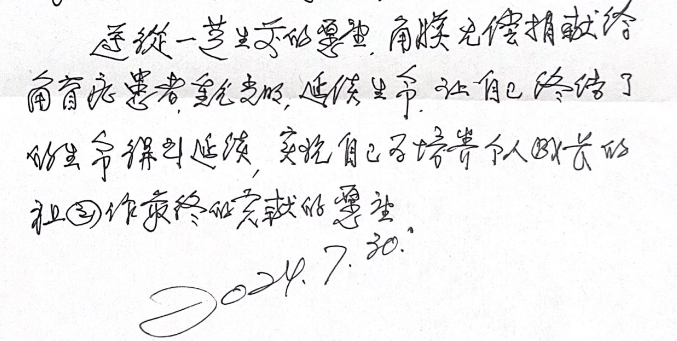 遵從一芝生前的愿望，角膜无偿捐献给
角盲症患者，重见光明，延续生命，让自己终结了
的生命得到延续，实现自己为培养个人成长的
社会作最终的贡献的愿望
2024.7.30.